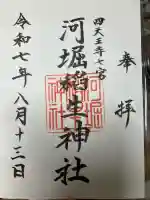 奉拝
四天王寺七宮
河堀稲生神社
令和七年八月十三日